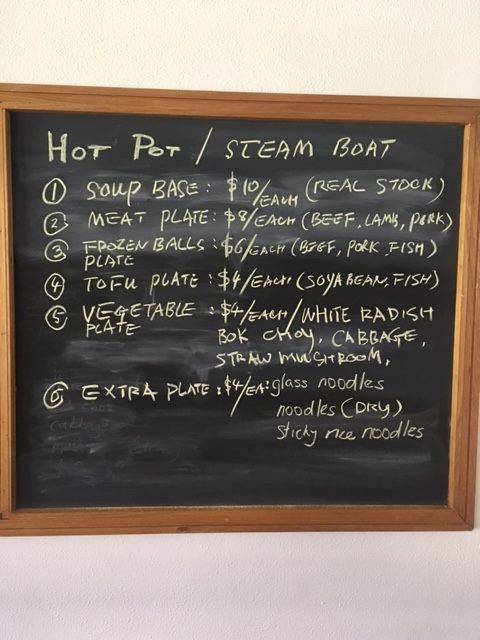 HOT POT / STEAM BOAT
① SOUP BASE: $10/EACH (REAL STOCK)
② MEAT PLATE: $8/EACH (BEEF, LAMB, PORK)
③ FROZEN BALLS PLATE: $6/EACH (BEEF, PORK, FISH)
④ TOFU PLATE: $4/EACH (SOYA BEAN, FISH)
⑤ VEGETABLE PLATE $4/EACH/WHITE RADISH
BOK CHOY, CABBAGE,
STRAW MUSHROOM,
⑥ EXTRA PLATE: $4/EA: glass noodles
noodles (DRY)
sticky rice noodles